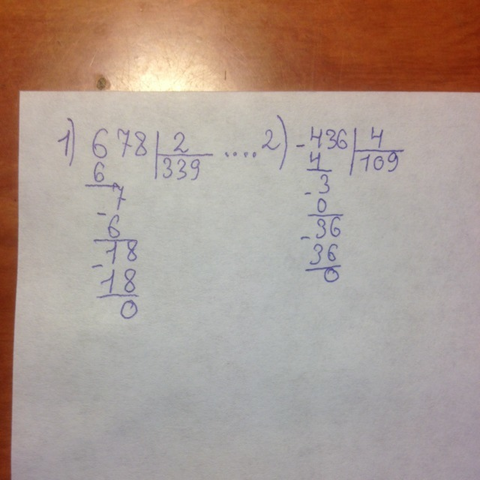 1) 678 | 2 .... 2) - 436 | 4
6 | 339 4 | 109
7 - 3
- 6 0
- 18 - 36
18 36
0 0